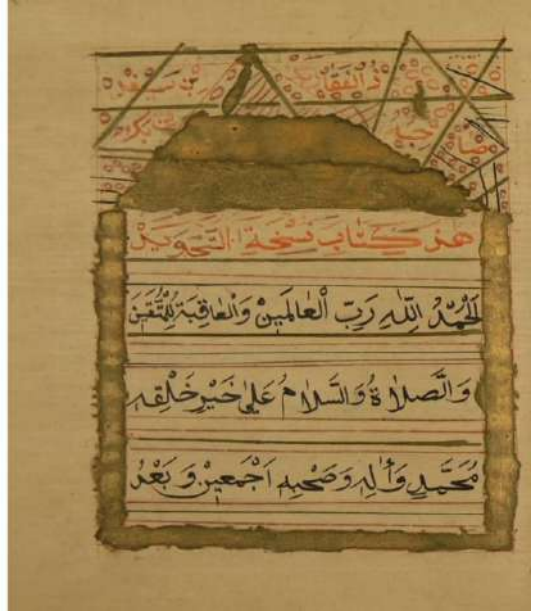 ذو الفقار
صاحبه
هذ كتاب نسخة التجويد
اَلْحَمْدُ اللّٰهِ رَبِّ الْعَالَمِينْ وَالْعَاقِبَةُ لِلْمُتَّقِينَ
وَالصَّلَاةُ وَالسَّلَامُ عَلٰى خَيْرِ خَلْقِهِ
مُحَمَّدٍ وَأٰلِهِ وَصَحْبِهِ اَجْمَعِينْ وَبَعْدُ